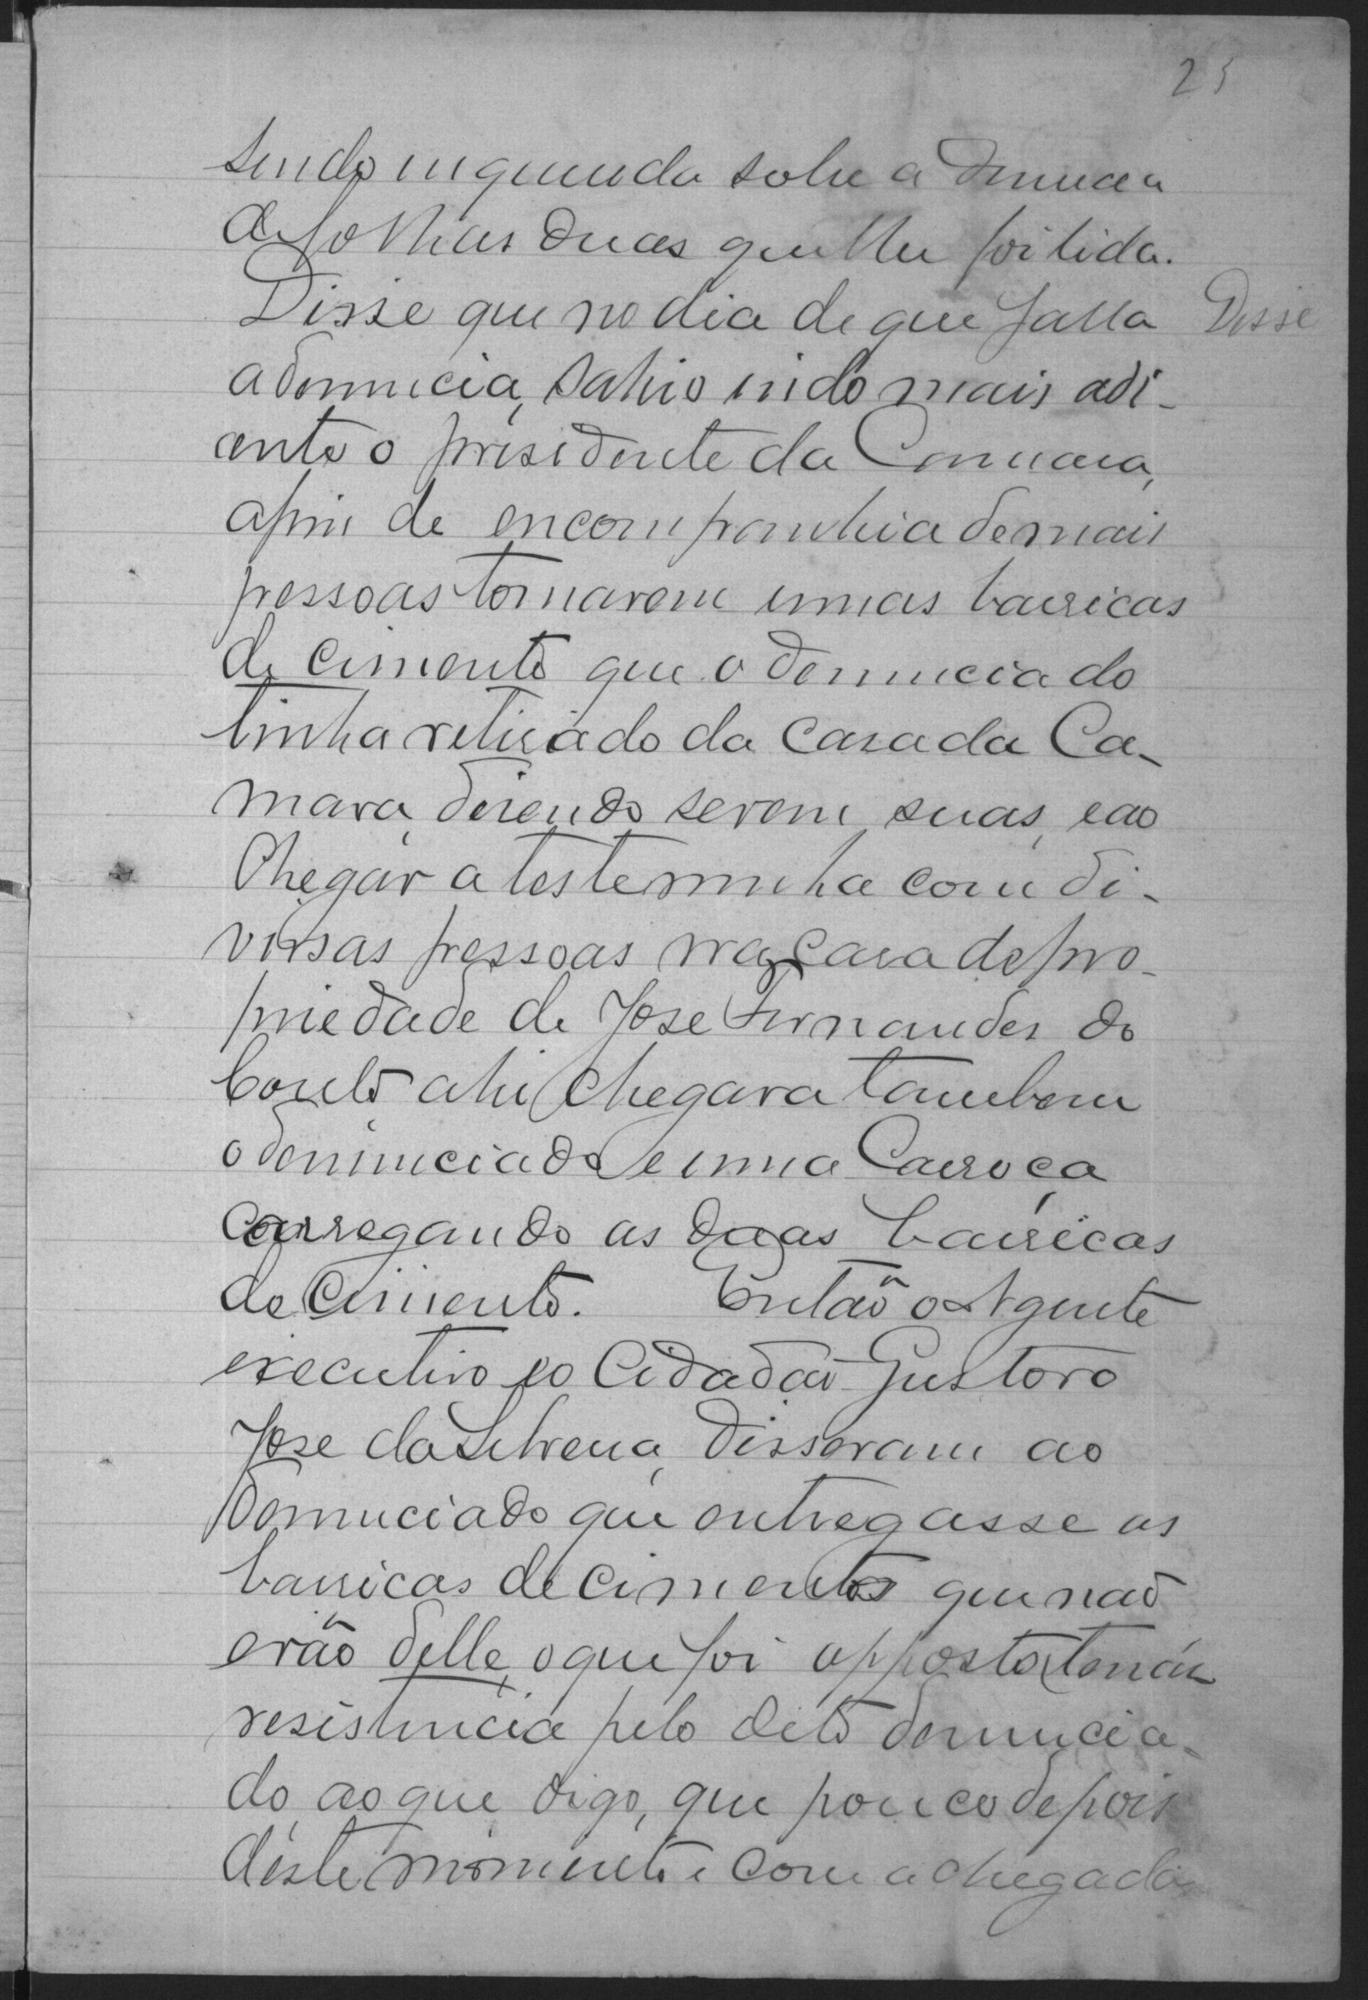 25
sendo inquirida sobre a denuncia
de folhas duas que lhe foi lida.
Disse que no dia de que falla Disse
a denuncia, sahio indo mais adi-
ante o presidente da Camara,
afim de em companhia de mais
pessoas tomarem umas barricas
de cimento que o denunciado
tinha retirado da casa da Ca-
mara, disendo serem suas, e ao
chegar a testemunha com di-
versas pessoas na casa de pro-
priedade de Jose Fernandes do
Couto ahi chegara tambem
o denunciado e uma Carroça
carregando as duas barricas
de cimento. Então o Agente
executivo e o Cidadão Gustavo
Jose da Silveira, disseram ao
denunciado que entregasse as
barricas de cimento que não
erão delle, o que foi opposto tenáz
resistencia pelo dito denuncia-
do, ao que digo, que pouco depois
deste momento e com a chegada